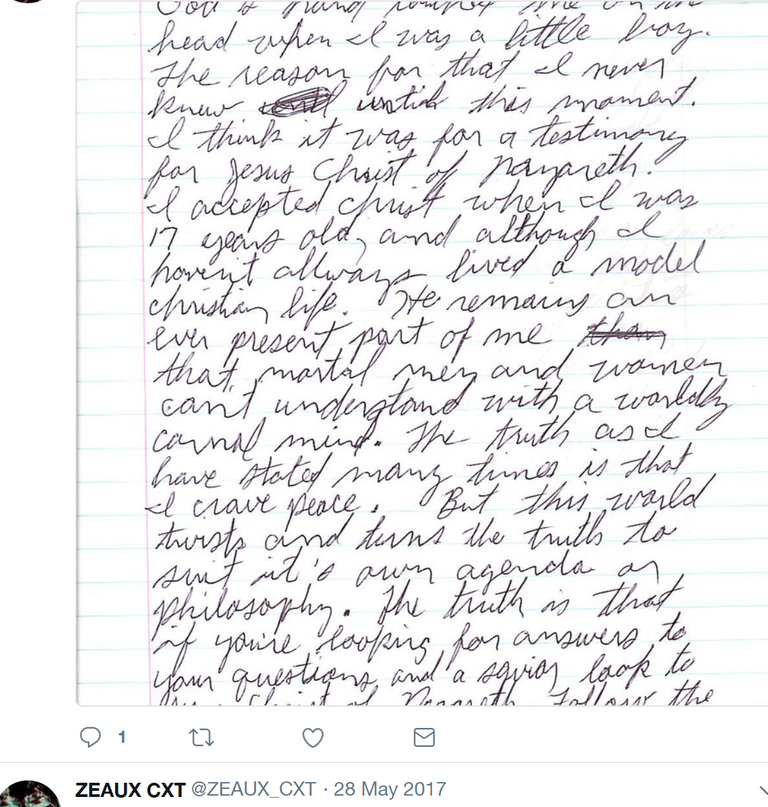 God's hand touched me on my
head when I was a little boy.
The reason for that I never
knew until this moment.
I think it was for a testimony
for Jesus Christ of Nazareth.
I accepted christ when I was
17 years old, and although I
haven't allways lived a model
christian life. He remains an
ever present part of me
that mortal men and women
can't understand with a worldly
carnal mind. The truth as I
have stated many times is that
I crave peace. But this world
twists and turns the truth to
suit it's own agenda or
philosophy. The truth is that
if you're looking for answers to
your questions and a savior look to
Christ of Nazareth. Follow the
1
ZEAUX CXT @ZEAUX_CXT · 28 May 2017